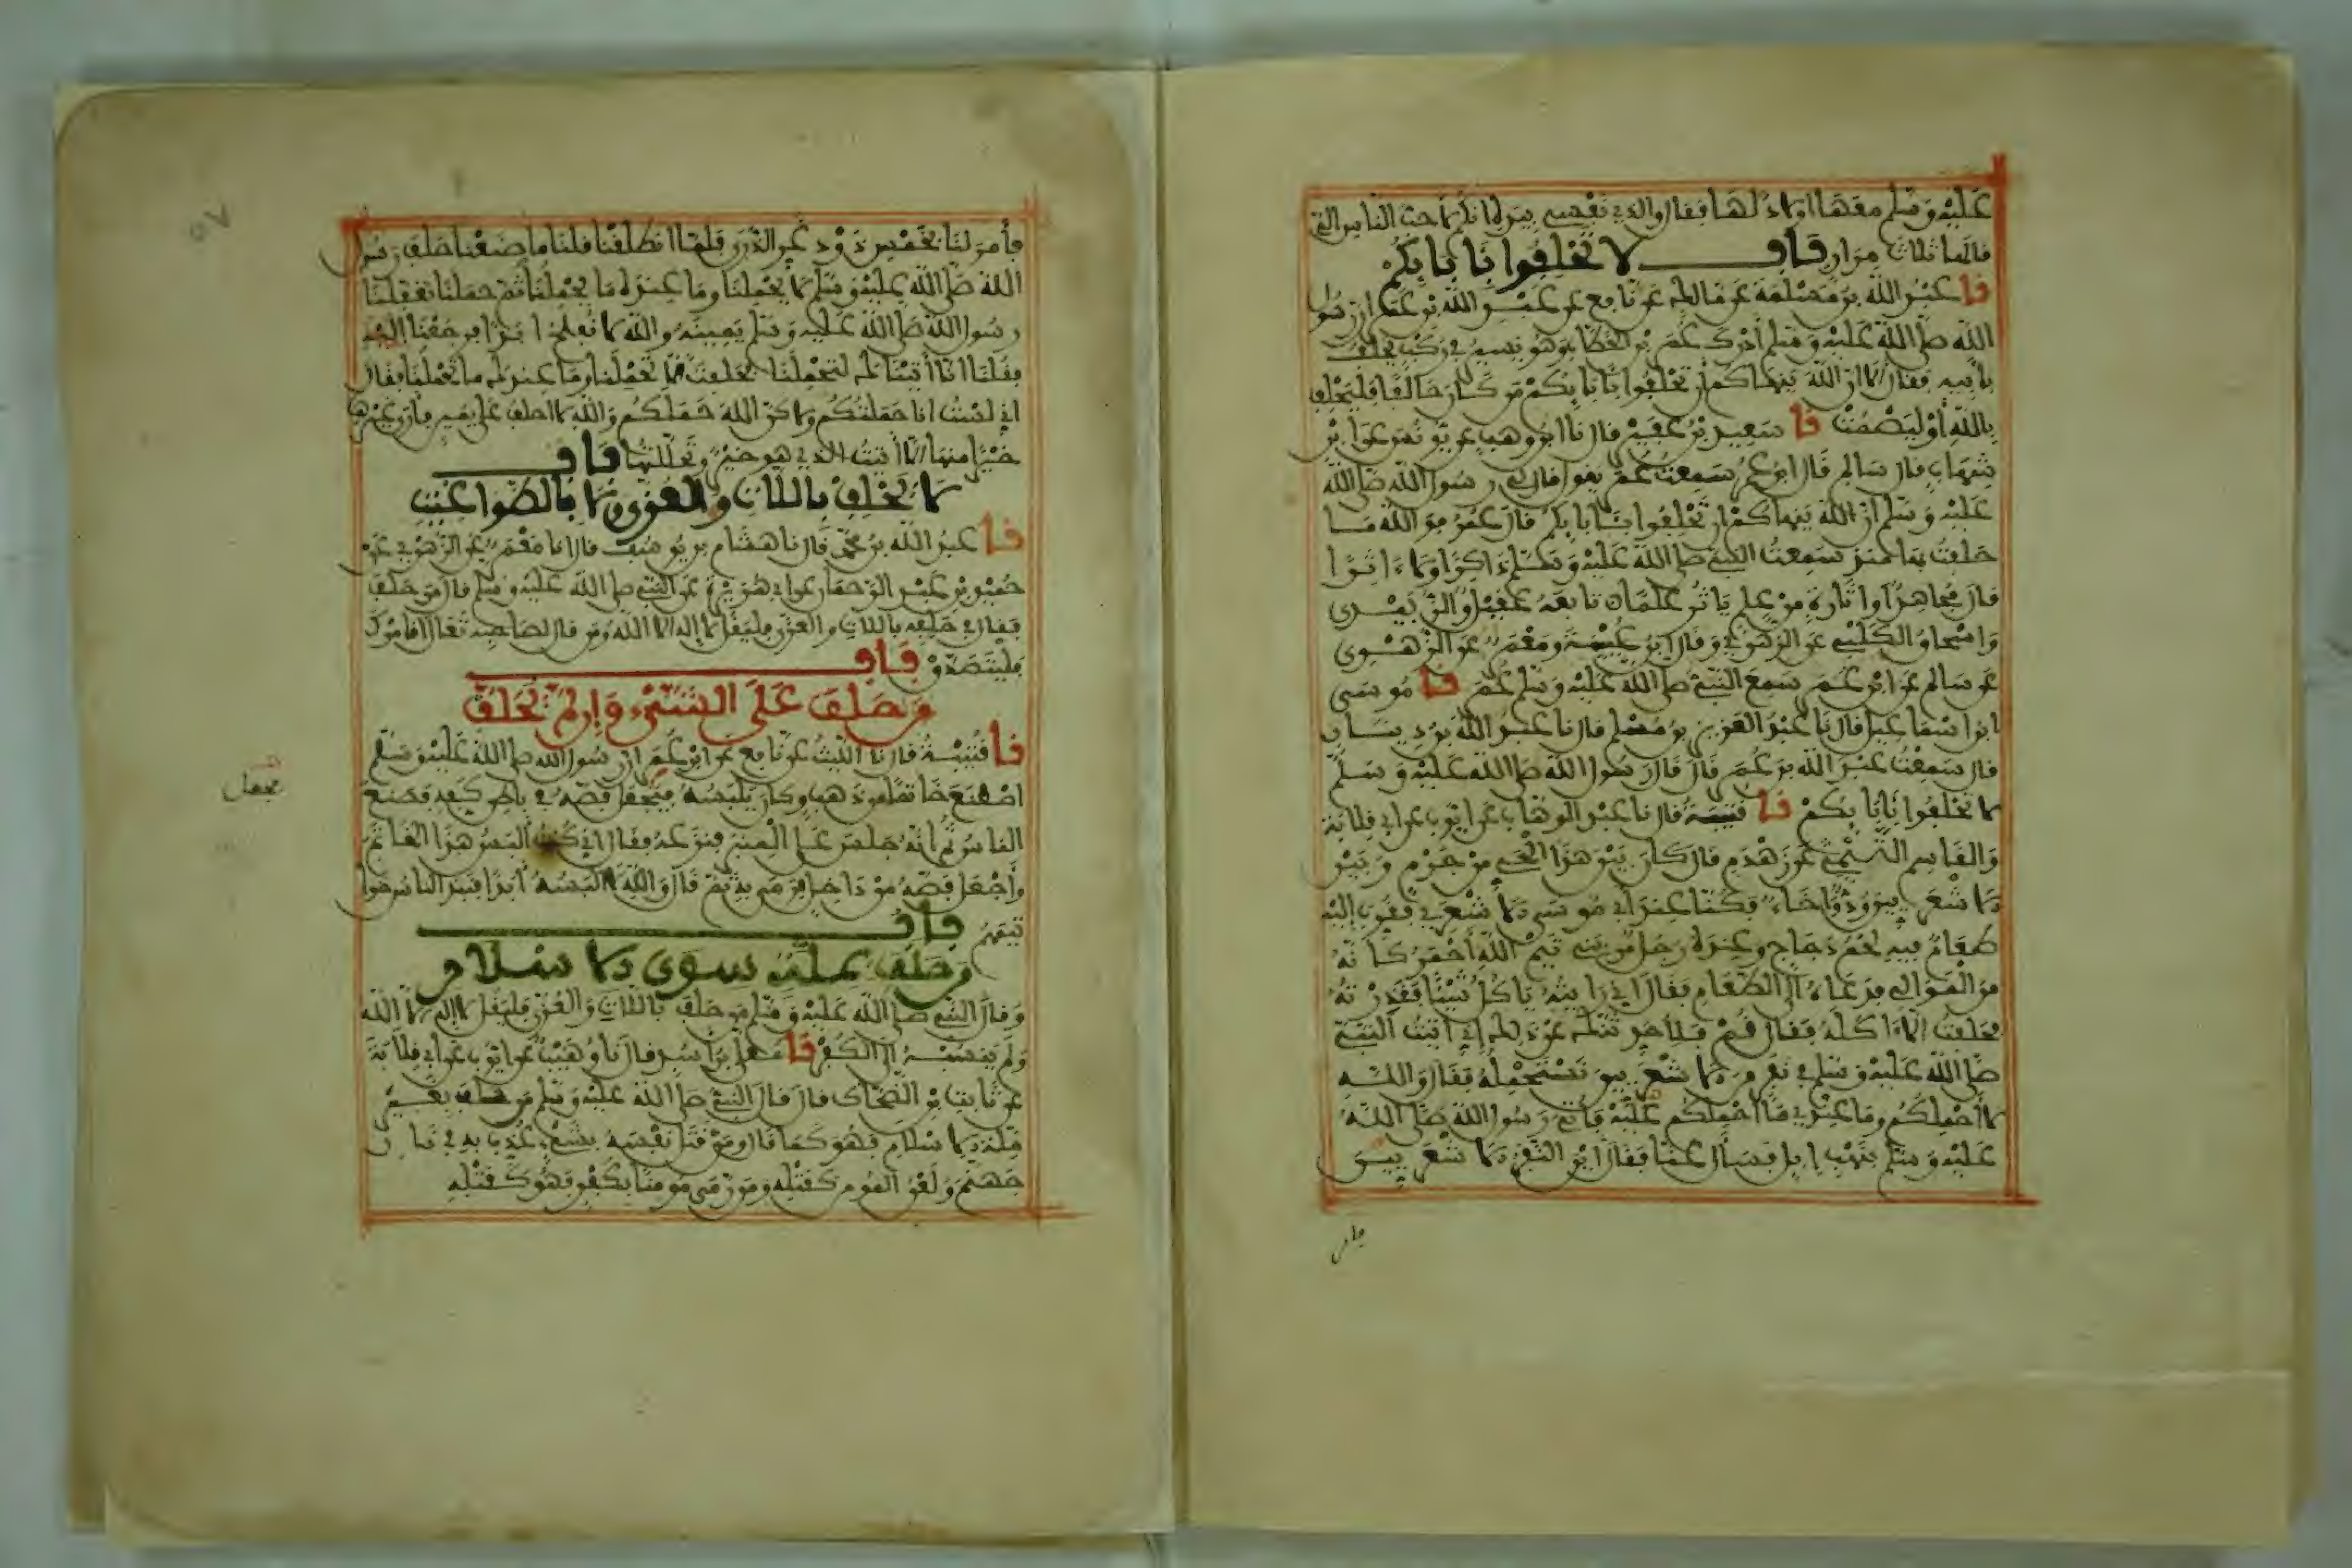 عليه وسلم معها اولاد لها فقال والذي نفسي بيده انكم لاحب الناس الي
قالها ثلاث مرار باب لا تحلفوا بآبائكم
نا عبد الله بن مسلمة عن مالك عن نافع عن عبد الله بن عمر ان رسول
الله صلى الله عليه وسلم ادرك عمر بن الخطاب وهو يسير في ركب يحلف
بابيه فقال الا ان الله ينهاكم ان تحلفوا بآبائكم من كان حالفا فليحلف
بالله أو ليصمت نا سعيد بن عفير قال نا ابن وهب عن يونس عن ابن
شهاب قال قال سالم قال ابن عمر سمعت عمر يقول قال لي رسول الله صلى الله
عليه وسلم ان الله ينهاكم ان تحلفوا بآبائكم قال عمر فو الله ما
حلفت بها منذ سمعت النبي صلى الله عليه وسلم ذاكرا ولا ءاثرا
قال مجاهد أو اثارة من علم ياثر علما تابعه عقيل والزبيدي
واسحاق الكلبي عن الزهري وقال ابن عيينة ومعمر عن الزهري
عن سالم عن ابن عمر سمع النبي صلى الله عليه وسلم عمر نا موسى
ابن اسماعيل قال نا عبد العزيز بن مسلم قال نا عبد الله بن دينار
قال سمعت عبد الله بن عمر قال قال رسول الله صلى الله عليه وسلم
لا تحلفوا بآبائكم نا قتيبة قال نا عبد الوهاب عن ايوب عن ابي قلابة
والقاسم التميمي عن زهدم قال كان بين هذا الحي من جرم وبين
الاشعريين ود واخاء فكنا عند ابي موسى الاشعري فقرب اليه
طعام فيه لحم دجاج وعنده رجل من بني تيم الله أحمر كانه
من الموالي فدعاه الى الطعام فقال اني رايته ياكل شيئا فقذرته
فحلفت الا ءاكله فقال قم فلاحدثنك عن ذلك اني اتيت النبي
صلى الله عليه وسلم في نفر من الاشعريين نستحمله فقال والله
لا احملكم وما عندي ما احملكم عليه فاتي رسول الله صلى الله
عليه وسلم بنهب ابل فسأل عنا فقال اين النفر الاشعريون
فامر
فأمر لنا بخمس ذود غر الذرى فلما انطلقنا قلنا ما صنعنا حلف رسول
الله صلى الله عليه وسلم لا يحملنا وما عنده ما يحملنا ثم حملنا تغفلنا
رسول الله صلى الله عليه وسلم يمينه والله لا نفلح ابدا فرجعنا اليه
فقلنا انا أتيناك لتحملنا فحلفت الا تحملنا وما عندك ما تحملنا فقال
اني لست انا حملتكم ولاكن الله حملكم والله لا احلف على يمين فأرى غيرها
خيرا منها الا أتيت الذي هو خير وتحللتها باب
لا يحلف باللات والعزى ولا بالطواغيت
نا عبد الله بن محمد قال نا هشام بن يوسف قال انا معمر عن الزهري عن
حميد بن عبد الرحمان عن ابي هريرة عن النبي صلى الله عليه وسلم قال من حلف
فقال في حلفه باللات والعزى فليقل لا اله الا الله ومن قال لصاحبه تعال اقامرك
فليتصدق باب
من حلف على الشيء وان لم يحلف
نا قتيبة قال نا الليث عن نافع عن ابن عمر ان رسول الله صلى الله عليه وسلم
اصطنع خاتما من ذهب وكان يلبسه فيجعل فصه في باطن كفه فصنع
الناس ثم انه جلس على المنبر فنزعه فقال اني كنت البس هذا الخاتم
وأجعل فصه من داخل فرمى به ثم قال والله لا البسه أبدا فنبذ الناس خوا
تيمهم باب
من حلف بملة سوى الاسلام
وقال النبي صلى الله عليه وسلم من حلف باللات والعزى فليقل لا اله الا الله
ولم ينسبه الى الكفر نا معلى بن اسد قال نا وهيب عن ايوب عن ابي قلابة
عن ثابت بن الضحاك قال قال النبي صلى الله عليه وسلم من حلف بغير
ملة الاسلام فهو كما قال ومن قتل نفسه بشيء عذب به في نار
جهنم ولعن المومن كقتله ومن رمى مومنا بكفر فهو كقتله
فجعل
٥٧